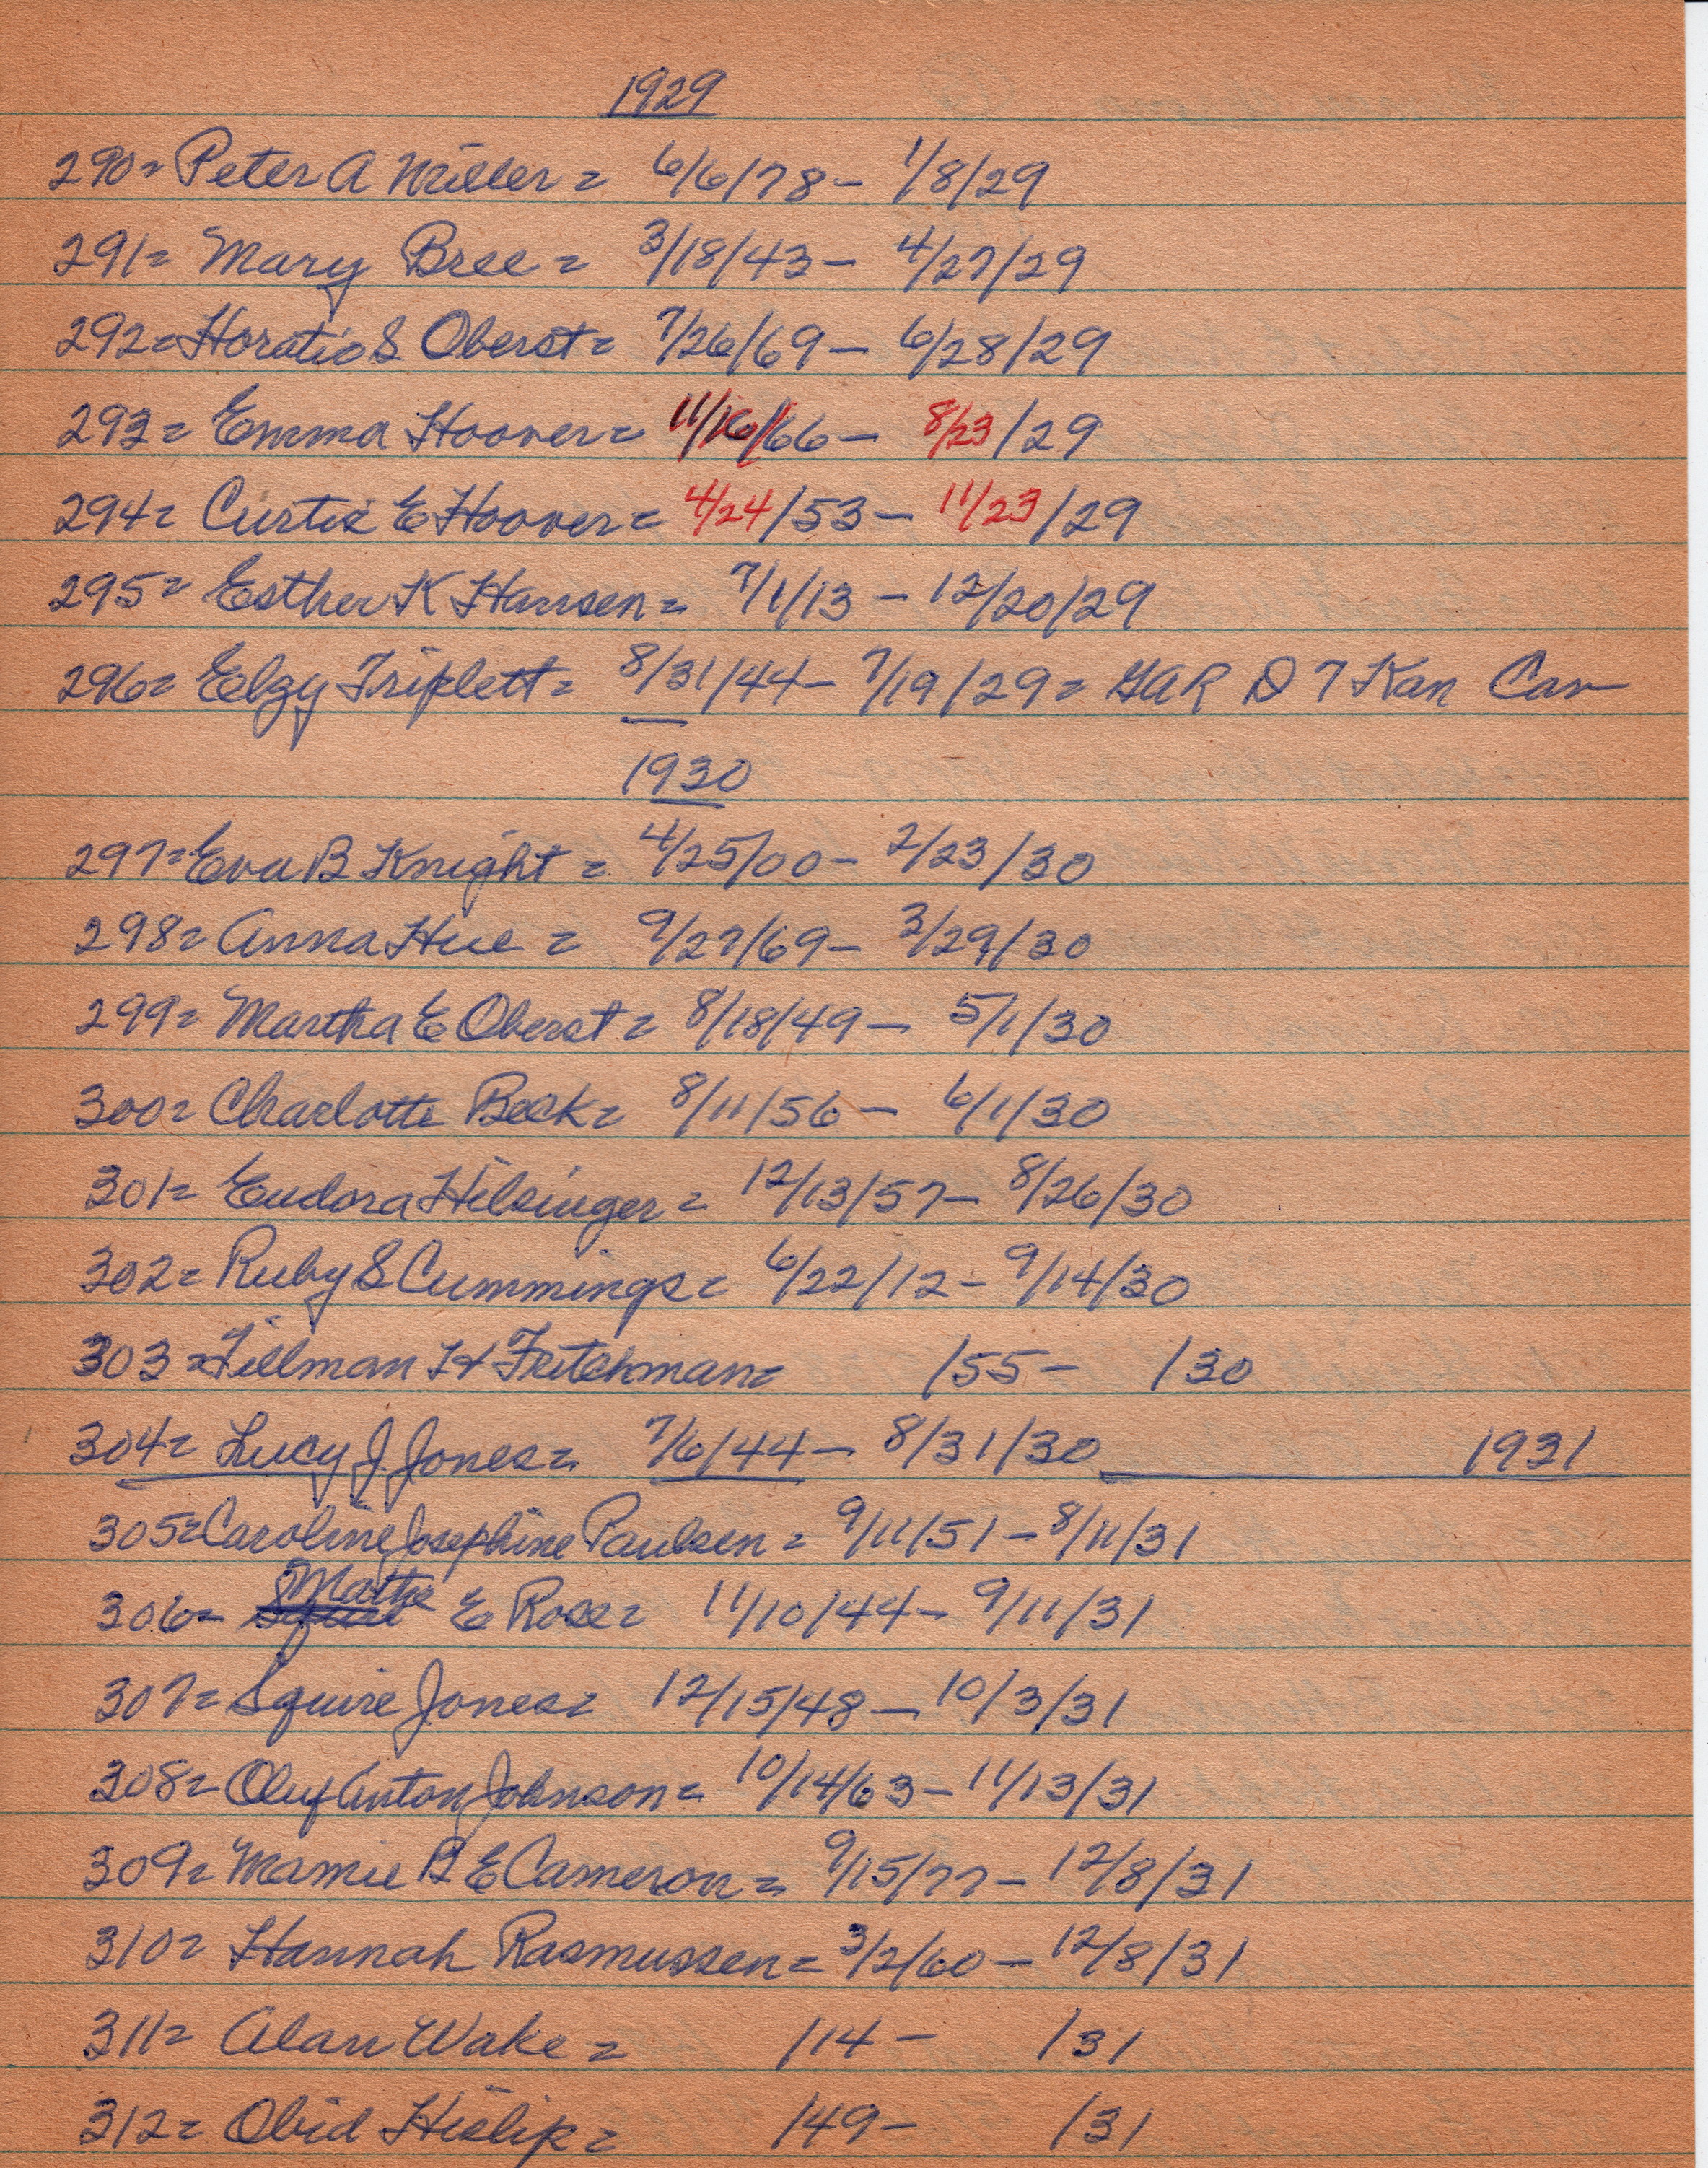 1929
290= Peter A Miller = 6/6/78 - 1/8/29
291= Mary Bree = 3/18/43 - 4/27/29
292= Horatio S Oberst = 7/26/69 - 6/28/29
293= Emma Hoover = 11/16/66 - 8/23/29
294= Curtis E Hoover = 4/24/53 - 11/23/29
295= Esther K Hansen = 7/1/13 - 12/20/29
296= Elzy Triplett = 8/31/44 - 7/19/29 = GAR D 7 Kan Cav
1930
297= Eva B Knight = 4/25/00 - 2/23/30
298= Anna Hue = 9/27/69 - 3/29/30
299= Martha E Oberst = 8/18/49 - 5/1/30
300= Charlotte Beck = 8/11/56 - 6/1/30
301= Eudora Hilsinger = 12/13/57 - 8/26/30
302= Ruby S Cummings = 6/22/12 - 9/14/30
303= Tillman H Fritchman = /55 - /30
304= Lucy J Jones = 7/6/44 - 8/31/30 1931
305= Caroline Josephine Paulsen = 9/11/51 - 8/11/31
306= Squire Mattie E Rose = 11/10/44 - 9/11/31
307= Squire Jones = 12/15/48 - 10/3/31
308= Oluf Anton Johnson = 10/14/63 - 11/13/31
309= Mamie B E Cameron = 9/15/77 - 12/8/31
310= Hannah Rasmussen = 3/2/60 - 12/8/31
311= Alan Wake = /14 - /31
312= Obid Hislip = /49 - /31